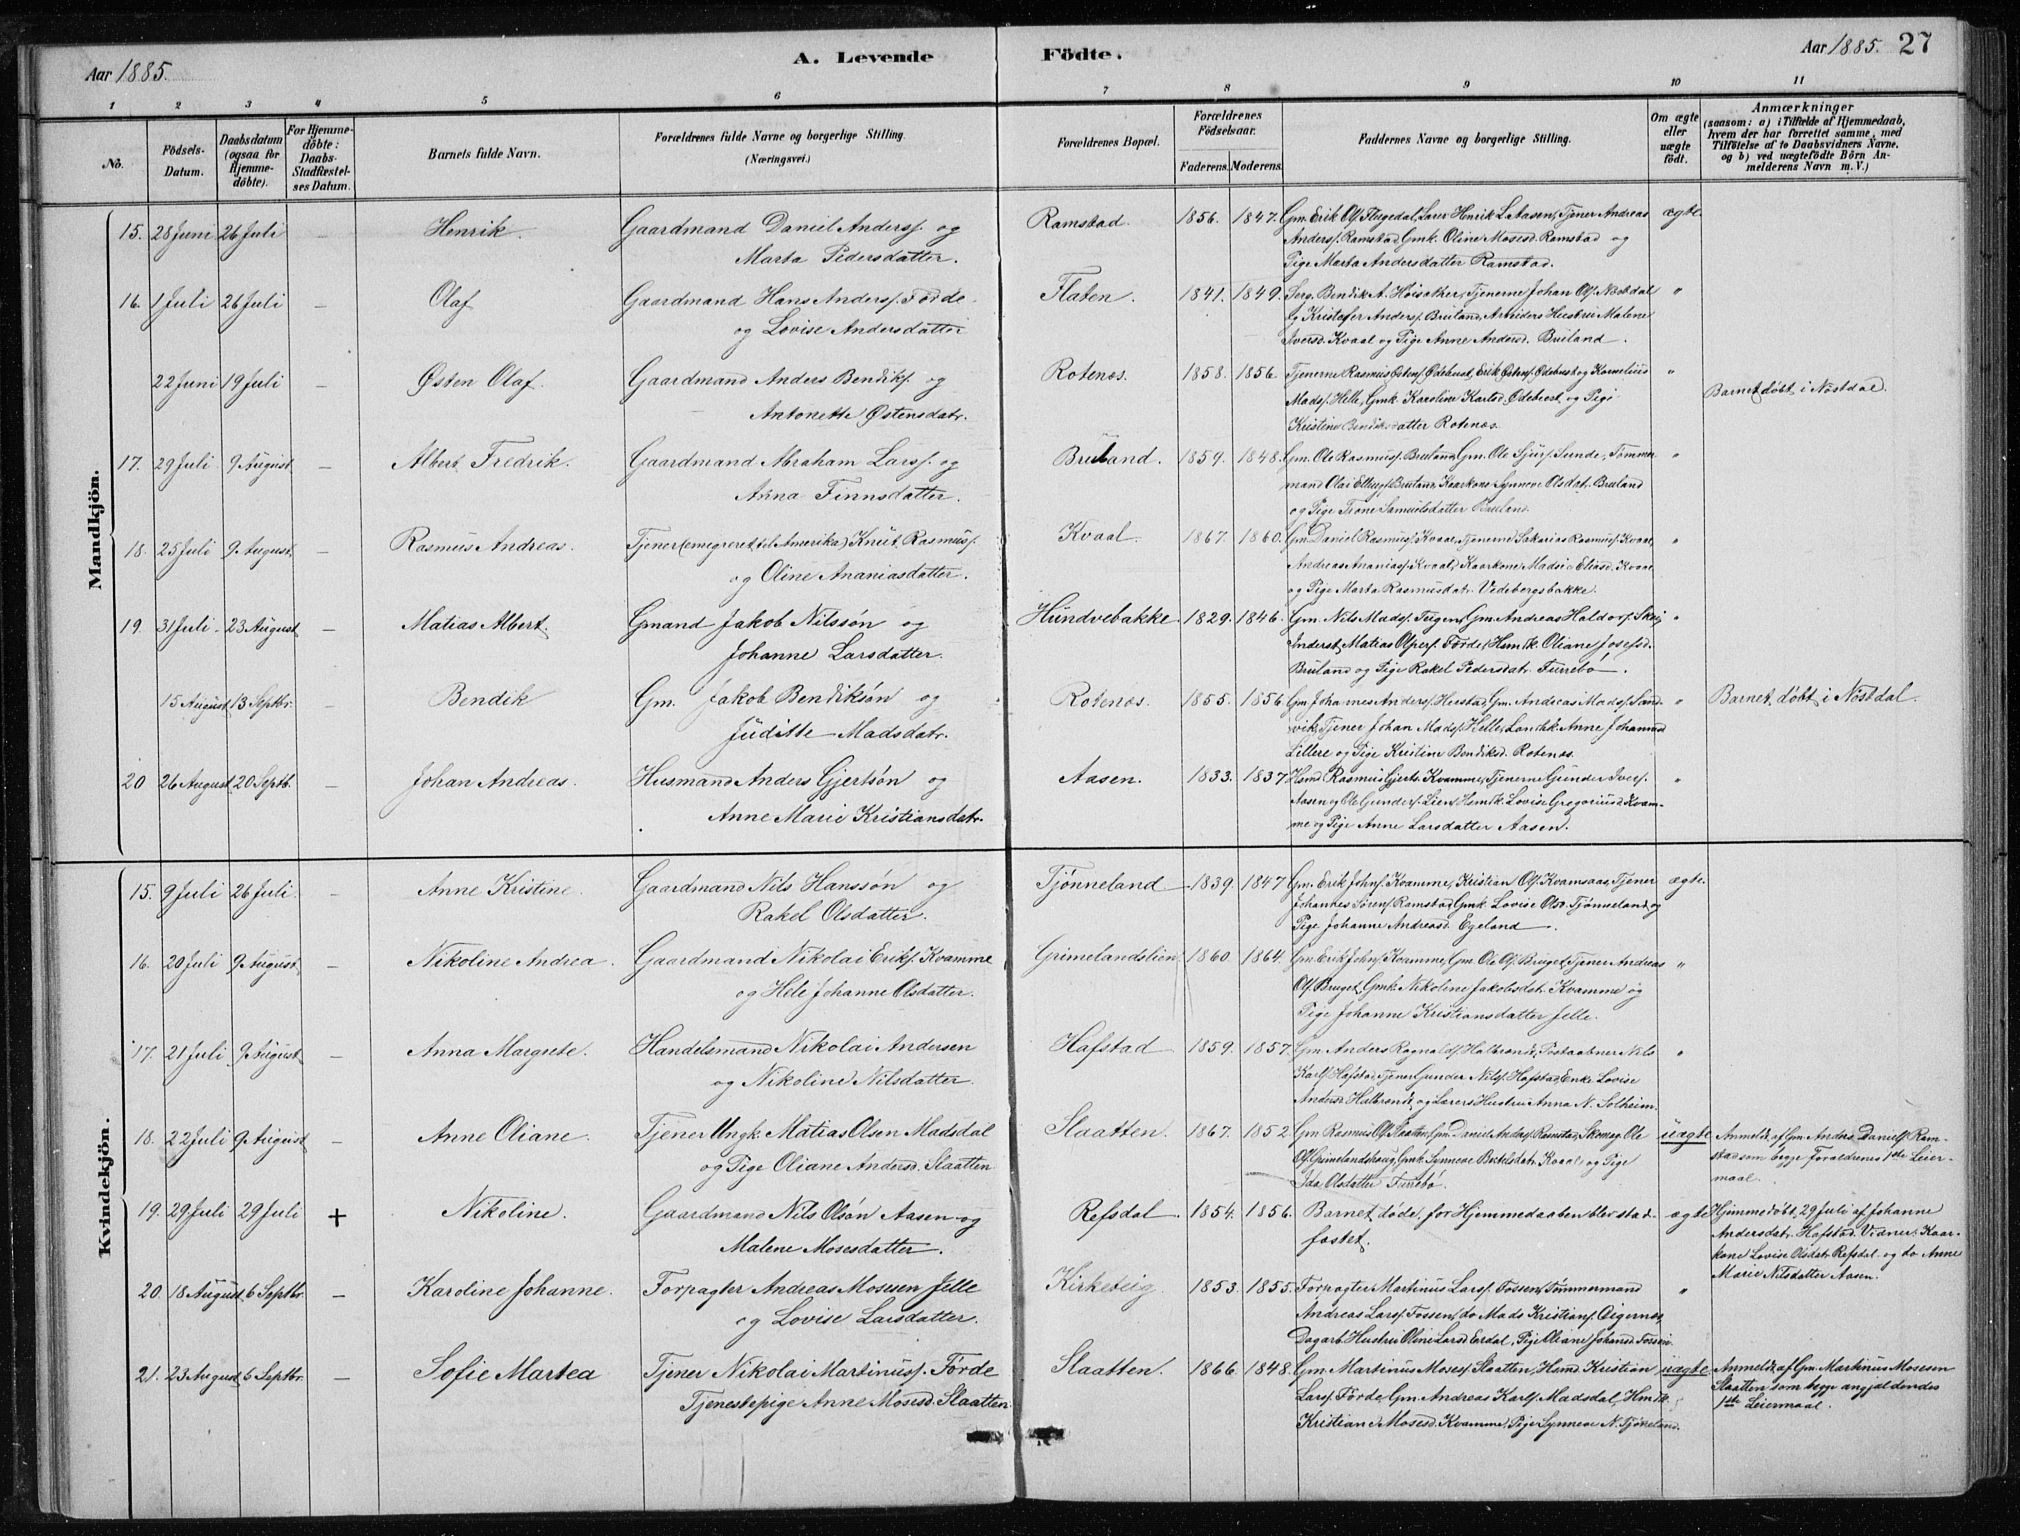 Aar 1885.
A. Levende
Födte.
Aar 1885. 27
1 2 3 4 5 6 7 8 9 10 11
No.
Födsels-Datum.
Daabsdatum (ogsaa for Hjemmedöbte).
For Hjemmedöbte: Daabs-Stadfæstelses Datum.
Barnets fulde Navn.
Forældrenes fulde Navne og borgerlige Stilling.
(Næringsvei.)
Forældrenes Bopæl.
Forældrenes Födselsaar.
Faderens. Moderens.
Faddernes Navne og borgerlige Stilling.
Om ægte eller uægte födt.
Anmærkninger
(saasom: a) i Tilfælde af Hjemmedaab,
hvem der har forrettet samme, med
Tilföielse af to Daabsvidners Navne.
og b) ved uægtefödte Börn Anmelderens Navn m. V.)
Mandkjön.
15. 28 Juni 26 Juli – Henrik. Gaardmand Daniel Anders. og Ramstad. 1856. 1847. Gm. Erik Ols. Flugedal, Lærer Henrik L. Aasen, Tjener Andreas ægte.
Marta Pedersdatter. Anders. Ramstad, Gmk. Oline Mosesd. Ramstad og
Pige Marta Andersdatter Ramstad.
16. 1 Juli 26 Juli – Olaf Gaardmand Hans Anders. Förde Flaten. 1841. 1849. Serg. Bendik A. Höisæther, Tjenerne Johan Ols. Nöstdal "
og Lovise Andersdatter og Kristofer Anders. Bruland, Arbeiders Hustru Malene
Iversd. Kvaal og Pige Anne Andersd. Bruland.
22 Juni 19 Juli – Østen Olaf. Gaardmand Anders Bendiks. og Rotenæs. 1858. 1856. Tjenerne Rasmus Østens. Ødehust, Erik Østens. Ødehust og Kornelius "
Antonette Østensdatr. Mads. Helle, Gmk. Karoline Ødehust og Pige Barnet döbt i Nöstdal.
Kristine Bendiksdatter Rotenæs.
17. 29 Juli 9 August – Albert Fredrik. Gaardmand Abraham Lars. og Bruland. 1859. 1848. Gm. Ole Rasmus. Bruland, Gm. Ole Sjurs. Sunde, Tömmer- "
Anna Finnsdatter. mand Olai Bruland, Kaarkone Synneve Olsdatr. Bruland
og Pige Trone Samuelsdatter Bruland.
18. 25 Juli 9 August – Rasmus Andreas. Tjener (emigreret til Amerika) Knut Rasmus. Kvaal. 1867. 1860. Gm. Daniel Rasmus. Kvaal, Tjenerne Sakarias Rasmus. Kvaal, "
og Oline Ananiasdatter. Andreas Ananias. Kvaal, Kaarkone Madsi Eliasd. Kvaal
og Pige Marta Rasmusdatr. Vedebergsbakke.
19. 31 Juli 23 August – Matias Albert. Gmand Jakob Nilssön og Hundvebakke. 1829. 1846. Gm. Nils Mads. Teigen, Gm. Andreas Haldors. Skei, "
Johanne Larsdatter. Inderst Matias Olpers. Förde, Hsmk. Oliane Josefsd.
Bruland og Pige Rakel Pedersdatr. Furrebö.
15 August 13 Septbr. – Bendik Gm. Jakob Bendiksön og Rotenæs. 1855. 1856. Gm. Johannes Anders. Herstad, Gm. Andreas Mads. Sand- " Barnet döbt i Nöstdal.
Juditte Madsdatr. vik, Tjener Johan Mads. Helle, Anne Johannesd.
Lillere og Pige Kristine Bendiksd. Rotenæs.
20 26 August 20 Septb. – Johan Andreas. Husmand Anders Gjertsön og Aasen. 1833. 1837 Hsmd. Rasmus Gjerts. Kvamme, Tjenerne Gunder Ivers. "
Anne Marie Kristiansdatr. Aasen og Ole Gunders. Lien, Hsmk. Lovise Gregoriusd. Kvam-
me og Pige Anne Larsdatter Aasen.
Kvindekjön.
15. 9 Juli 26 Juli. – Anne Kristine. Gaardmand Nils Hanssön og Tjönneland 1839. 1847 Gm. Erik Johns. Kvamme, Kristian Ols. Kvamsaas, Tjener ægte.
Rakel Olsdatter. Johannes Sörens. Ramstad, Gmk. Lovise Olsd. Tjönneland, og
Pige Johanne Andreasd. Egeland.
16. 20 Juli 9 August – Nikoline Andrea. Gaardmand Nikolai Eriks. Kvamme Grimelandslien. 1860. 1864. Gm. Erik Johns. Kvamme, Gm. Ole Ols. Bruget, Tjener Andreas "
og Hele Johanne Olsdatter. Ols. Bruget, Gmk. Nikoline Jakobsdatr. Kvamme og
Pige Johanne Kristiansdatter Jelle.
17. 21 Juli 9 August – Anna Margrete. Handelsmand Nikolai Andersen Hafstad 1859. 1857. Gm. Anders Ragnalds. Halbrend, Postaabner Nils "
og Nikoline Nilsdatter. Karls. Hafstad, Tjener Gunder Nils. Hafstad, Enke Lovise
Andersd. Halbrend og Lærers Hustru Anna N. Solheim.
18. 22 Juli 9 August – Anne Oliane. Tjener Ungk. Matias Olsen Madsdal Slaatten. 1867. 1852 Gm. Rasmus Ols. Slaatten, Gm. Daniel Anders. Ramstad, Skomag. Ole uægte Anmeldt af Gm. Anders Daniels. Ram-
og Pige Oliane Andersd. Slaatten Ols. Grimelandshaug, Gmk. Synneve Bertelsdatr. Kvaal og Pige stad som begge Forældrenes 1ste Leier-
Ida Olsdatter Furrebö. maal.
19. 29 Juli 29 Juli + Nikoline. Gaardmand Nils Olsön Aasen og Refsdal 1854. 1856. Barnet döde, för Hjemmedaaben blev stad- ægte Hjemmedöbt 29 Juli af Johanne
Malene Mosesdatter. fæstet. Andersdatr. Hafstad. Vidner: Kaar-
kone Lovise Olsdatr. Refsdal og do Anne
Marie Nilsdatter Aasen.
20. 18 August 6 Septbr. – Karoline Johanne. Forpagter Andreas Mosesen Jelle Kirketeig. 1853. 1855. Forpagter Martinus Lars. Fossen, Tömmermand "
og Lovise Larsdatter. Andreas Lars. Fossen, do Mads Kristians.
Dagarb. Hustru Oline Larsd. Erdal, Pige Oliane Johansd. Fossen.
21. 23 August 6 Septbr. – Sofie Martea Tjener Nikolai Martinus. Förde Slaatten. 1866. 1848. Gm. Martinus Moses. Slaatten, Hsmd. Kristian uægte Anmeldt af Gm. Martinus Mosesen
Tjenestepige Anne Mosesd. Slaatten. Lars. Förde, Gm. Andreas Karls. Madsdal, Hsmk. Slaatten som begge angjældendes
Kristiane Mosesd. Kvamme, Pige Synneve N. Tjöneland. 1ste Leiermaal.